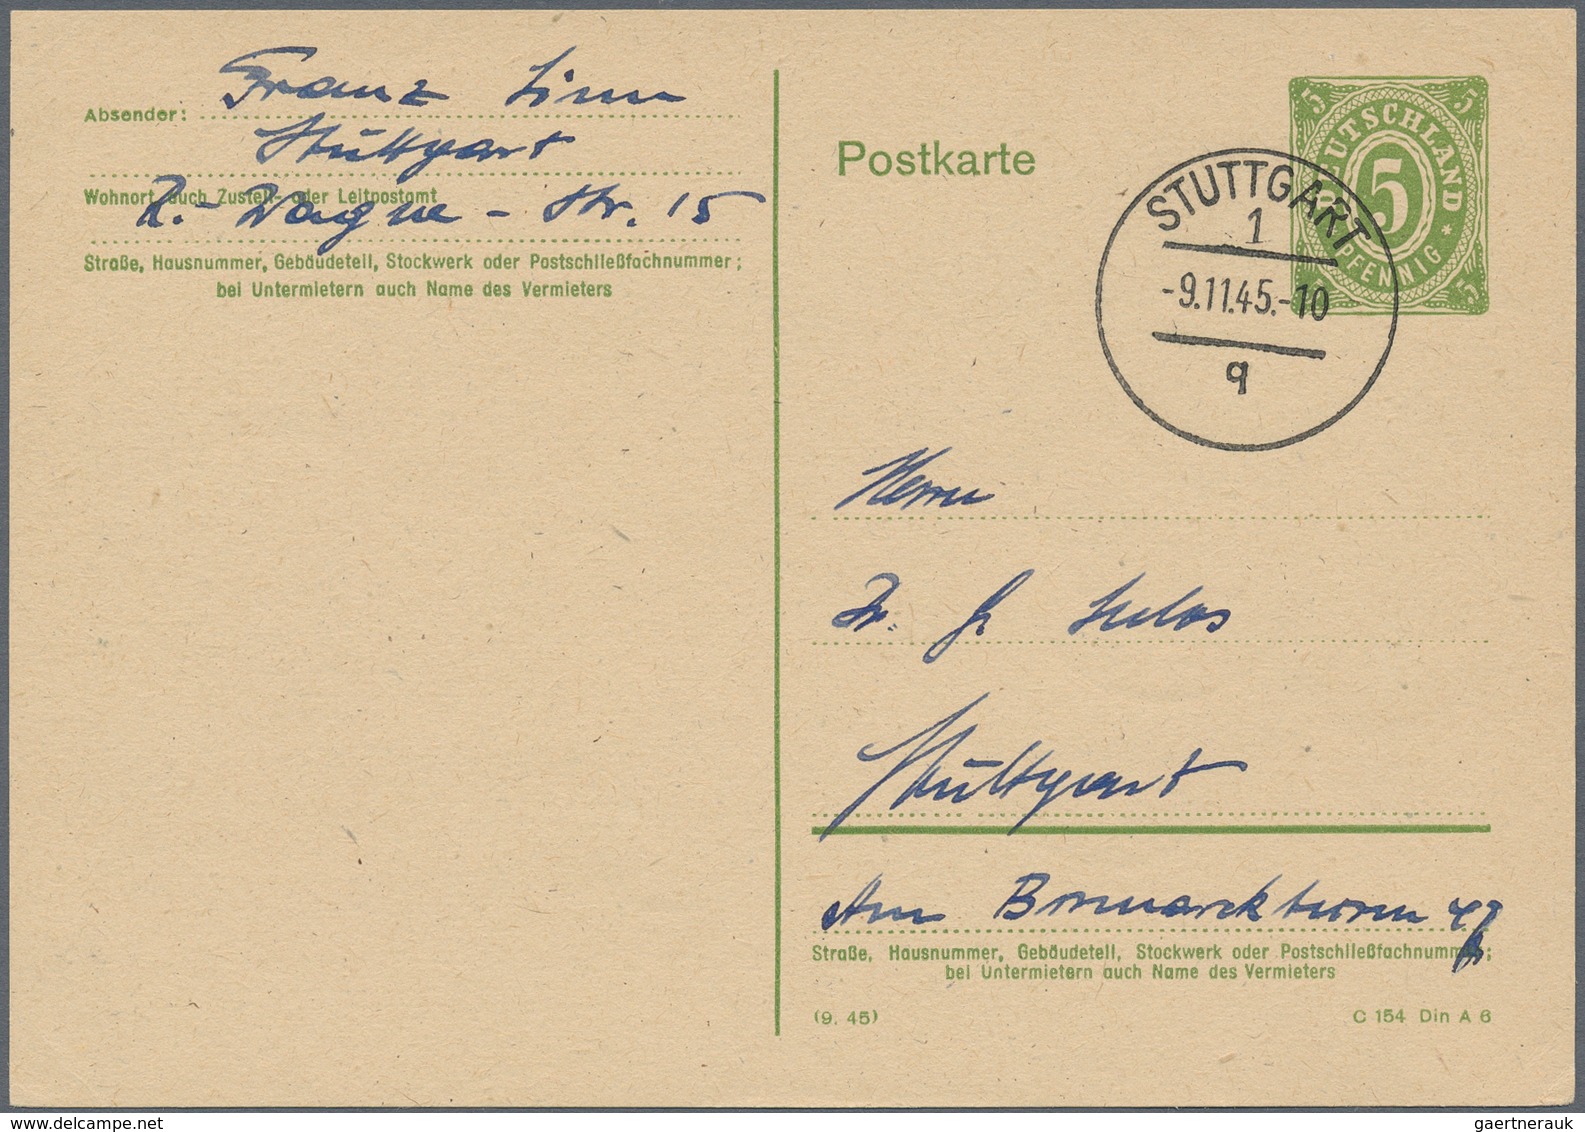 Absender: Franz Linn
Stuttgart
Wohnort, auch Zustell- oder Leitpostamt
R.-Wagne-Str. 15
Straße, Hausnummer, Gebäudeteil, Stockwerk oder Postschließfachnummer;
bei Untermietern auch Name des Vermieters
Postkarte
DEUTSCHLAND
5 5 5 5
PFENNIG
STUTTGART
1
-9.11.45.-10
q
Herrn
Dr. G.
Stuttgart
Am Bismarckturm
Straße, Hausnummer, Gebäudeteil, Stockwerk oder Postschließfachnummer;
bei Untermietern auch Name des Vermieters
(9. 45)
C 154 Din A 6
delcampe.net
gaertnerauk